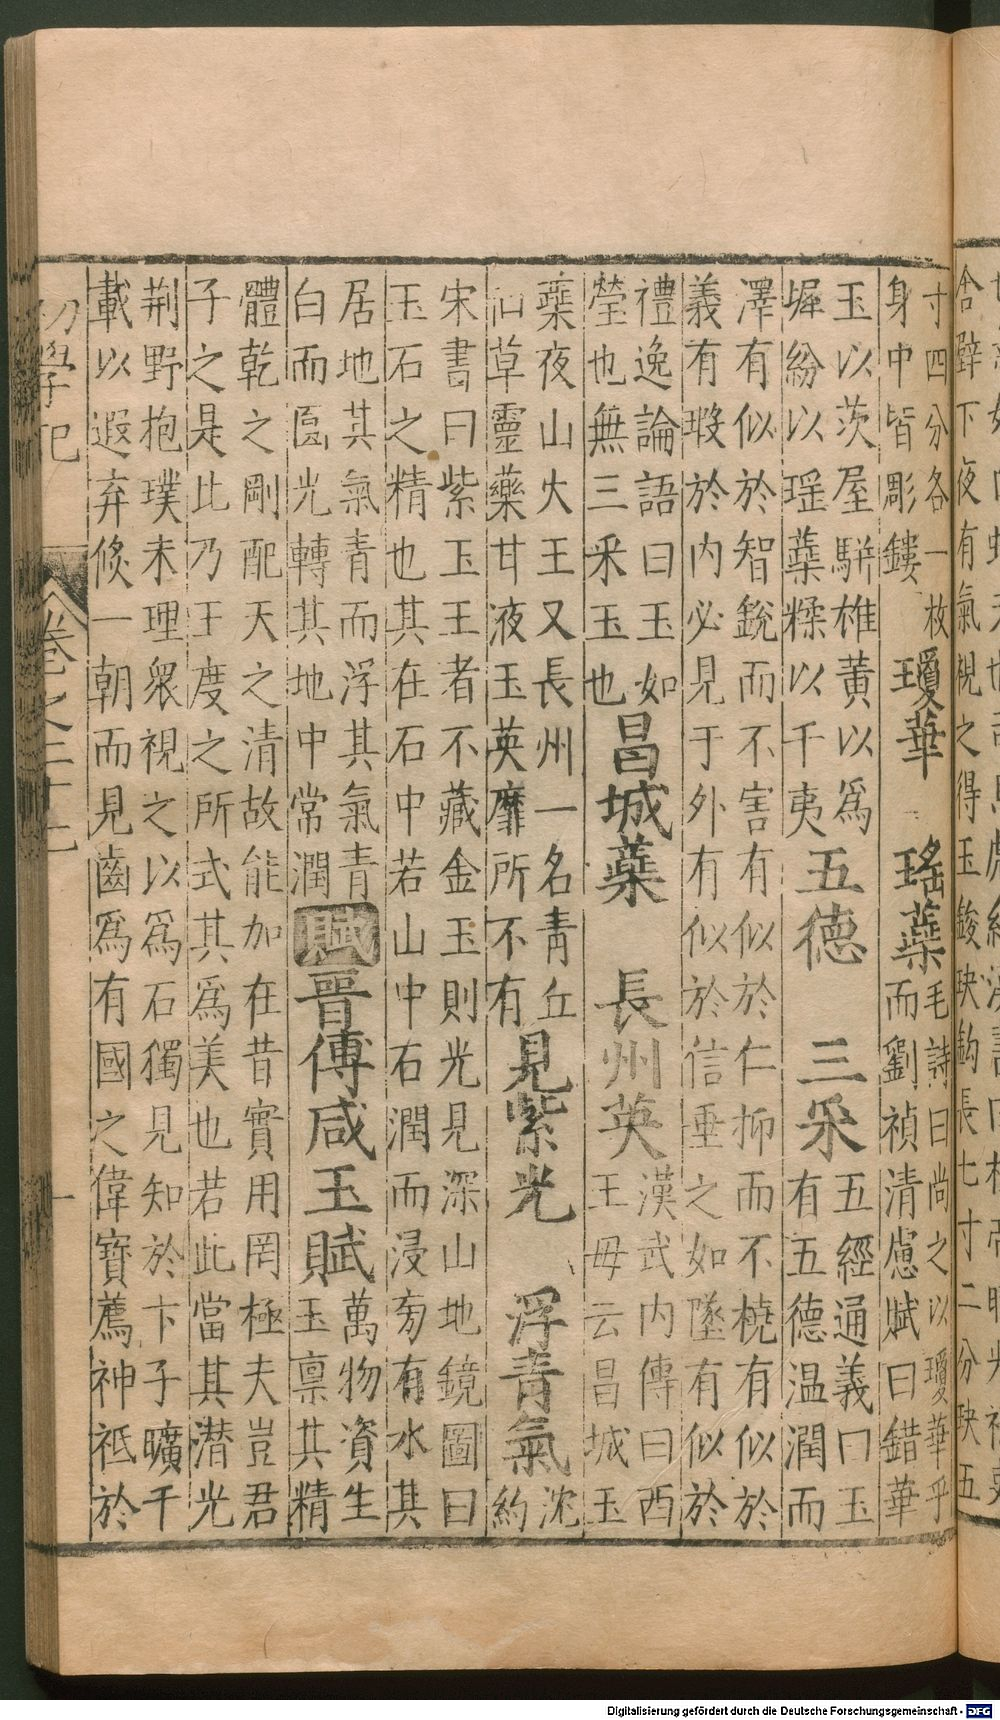 舍辟下夜有氣視之得玉鉸玦鉤長七寸二分玦五
寸四分各一枚
身中皆彫鏤
瓊華　瑤蘂
毛詩曰尚之以瓊華乎
而劉禎清慮賦曰錯華
玉以茨屋駢雄黃以爲
墀紛以瑶蘂糅以千夷
五德　三采
五經通義曰玉
有五德温潤而
澤有似於智銳而不害有似於仁抑而不橈有似於
義有瑕於内必見于外有似於信垂之如墜有似於
禮逸論語曰玉如
瑩也無三采玉也
昌城蘂　長州英
漢武内傳曰西
王毋云昌城玉
蘂夜山火王又長州一名青丘
仙草靈藥甘液玉英靡所不有
見紫光　浮青氣
沈
約
宋書曰紫玉王者不藏金玉則光見深山地鏡圖曰
玉石之精也其在石中若山中石潤而浸旁有水其
居地其氣青而浮其氣青
白而圎光轉其地中常潤
賦　晉傅咸玉賦
萬物資生
玉禀其精
體乾之剛配天之清故能加在昔實用罔極夫豈君
子之是比乃王度之所式其爲美也若此當其潛光
荆野抱璞未理衆視之以爲石獨見知於卞子曠千
載以遐弃倏一朝而見齒爲有國之偉寶薦神祗於
初學記　卷之二十七
Digitalisierung gefördert durch die Deutsche Forschungsgemeinschaft - DFG